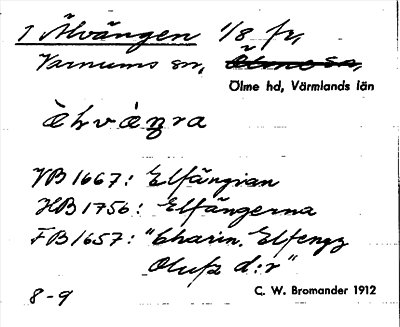 1 Älvängen 1/8 fr,
Varnums sn, Ölme sn,
Ölme hd, Värmlands län
VB 1667: Elfängian
HB 1756: Elfängerna
FB 1657: "Charin. Elfengz
Olufz d:r"
8-9 C. W. Bromander 1912